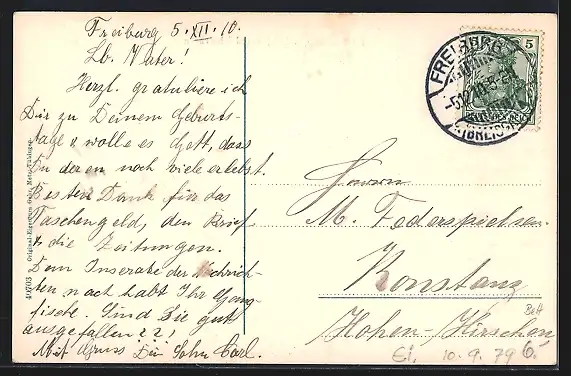 Freiburg 5.XII.10.
Lb. Vater!
Herzl. gratuliere ich
Dir zu Deinem Geburts-
tage & wolle es Gott, dass
Du deren noch viele erlebst.
Besten Dank für das
Taschengeld, den Brief
& die Zeitungen.
Dem Inserate der Nachrich-
ten nach habt Ihr Gang-
fische. Sind Sie gut
ausgefallen??
Mit Gruss Dein Sohn Carl.
Herrn
M. Federspiel sen.
Konstanz
Hohen-Hirschen
6.
FREIBURG
(BREISGAU)
5
40703
Original-Eigentum
Ei. 10.9.79